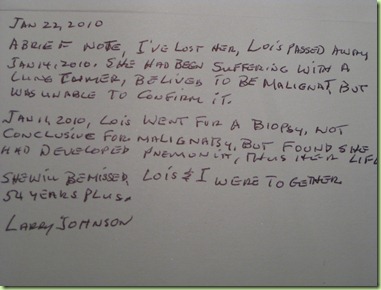 JAN 22, 2010
A BRIEF NOTE, I'VE LOST HER, LOIS PASSED AWAY
JAN 14, 2010. SHE HAD BEEN SUFFERING WITH A
LUNG TUMER, BELIVED TO BE MALIGNAT, BUT
WAS UNABLE TO CONFIRM IT.
JAN 11, 2010, LOIS WENT FOR A BIOPSY, NOT
CONCLUSIVE FOR MALIGNATSY, BUT FOUND SHE
HAD DEVELOPED PNEMONIA, THUS HER LIFE
SHE WILL BE MISSED, LOIS & I WERE TOGETHER
54 YEARS PLUS.
LARRY JOHNSON